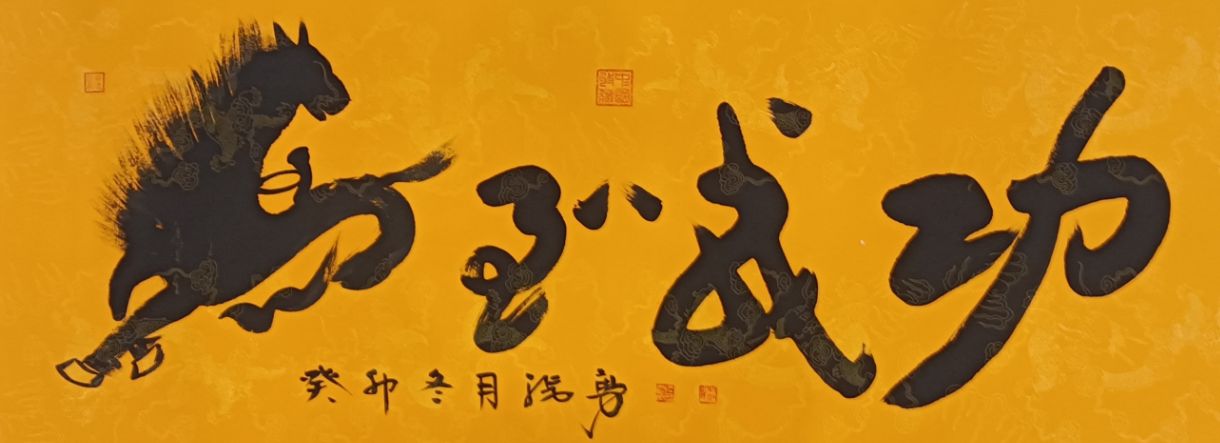 马到成功
癸卯冬月